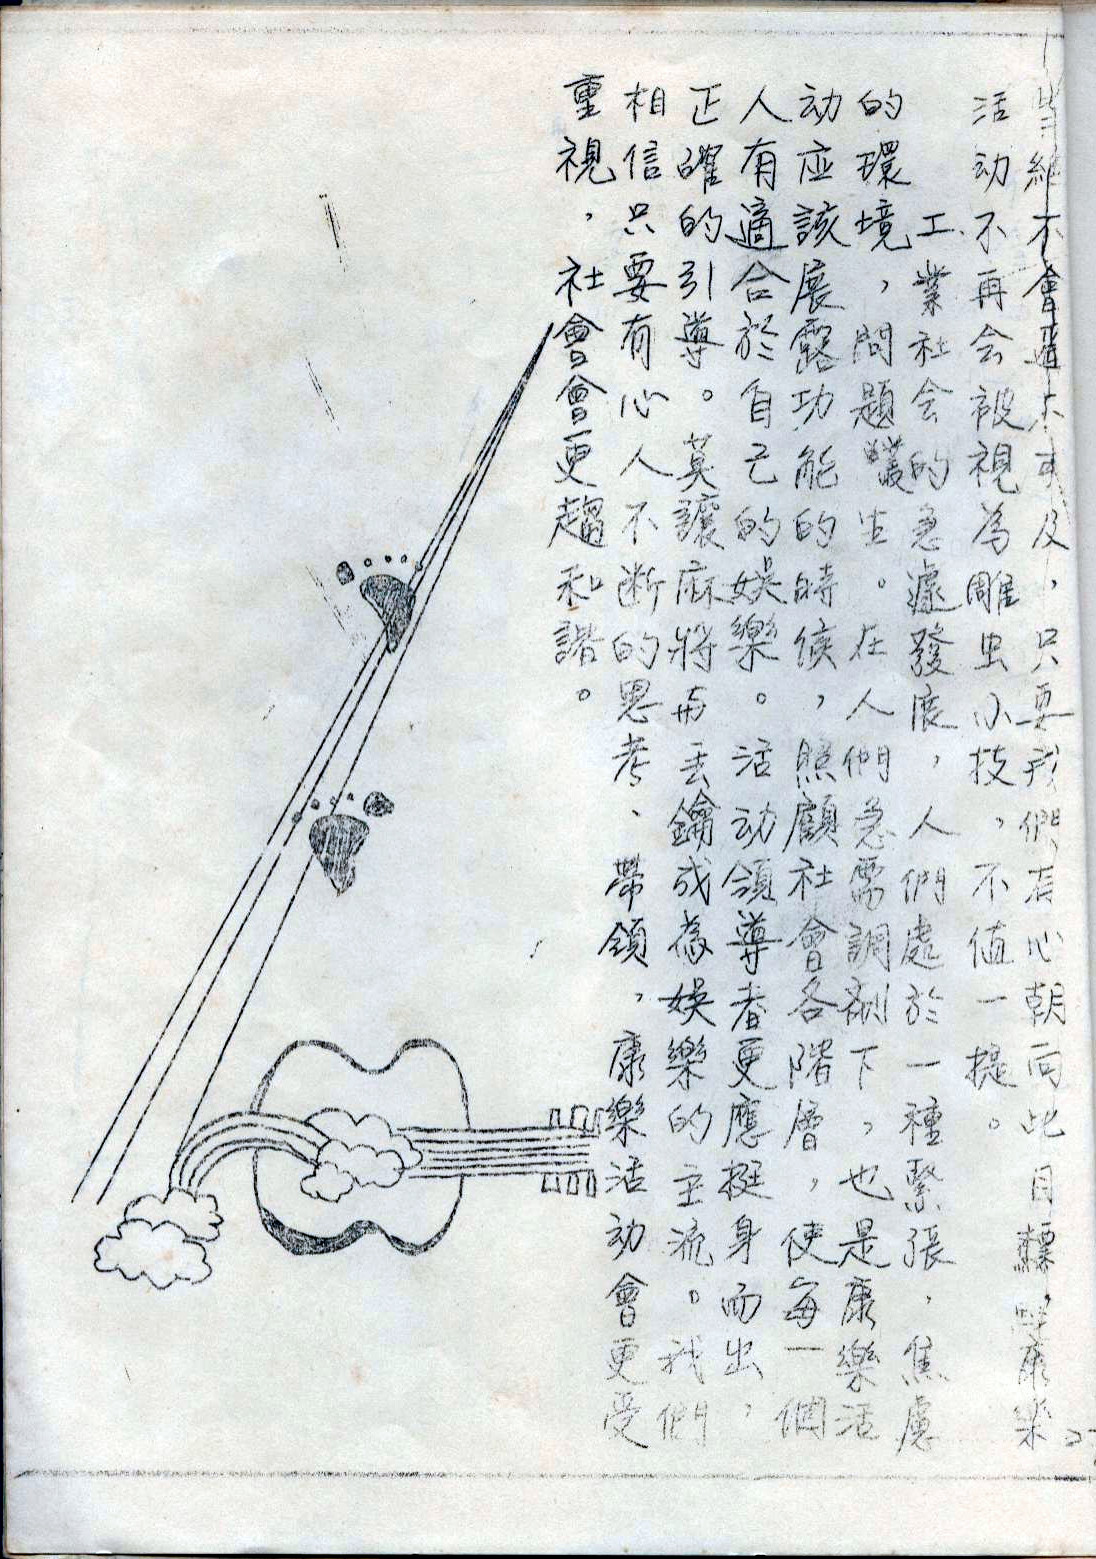 維不會道及，只要我們有心朝向此目標，康樂
活动不再会被視為雕虫小技，不值一提。
工業社会的急遽發展，人們處於一種緊張，焦慮
的環境，問題叢生。在人們急需調劑下，也是康樂活
动应該展露功能的時候，照顧社會各階層，使每一個
人有適合於自己的娛樂。活动領導者更應挺身而出，
正確的引導。莫讓麻將丟鑰成為娛樂的主流。我們
相信只要有心人不断的思考、帶領，康樂活动會更受
重視，社會會更趨和諧。